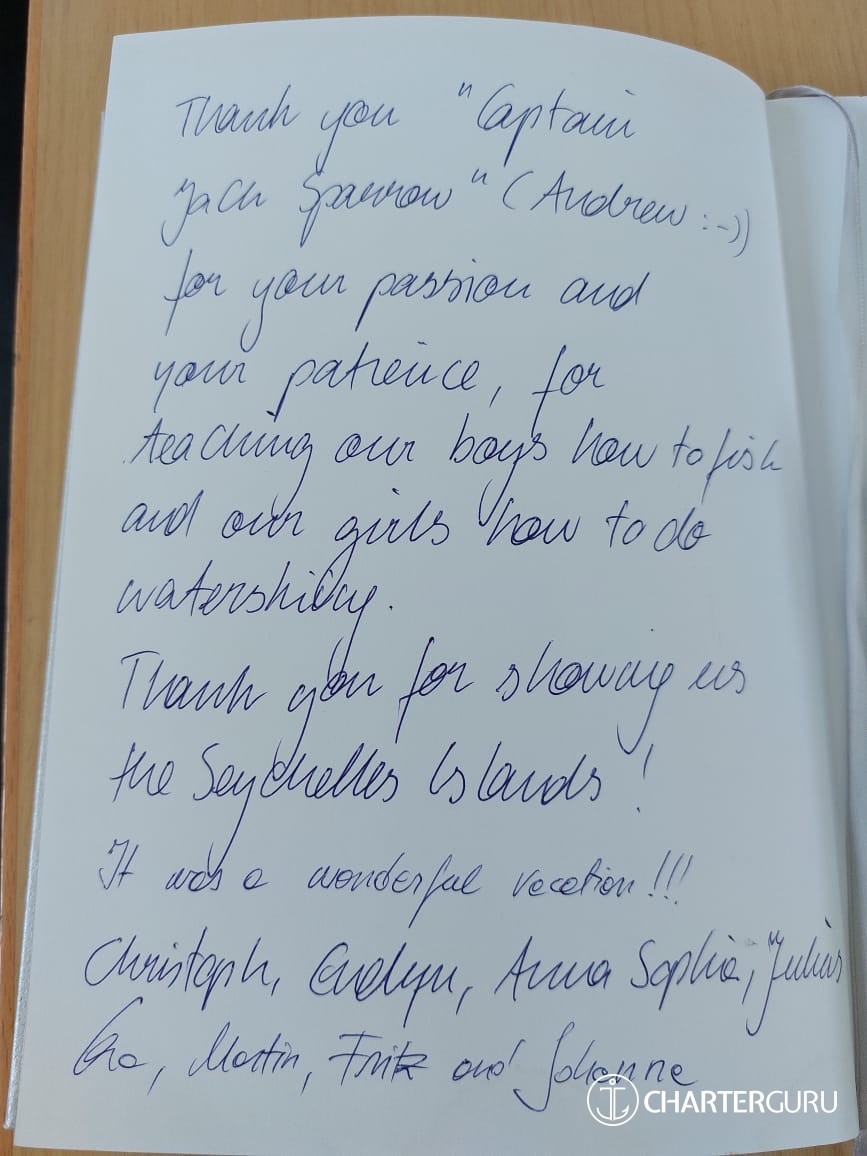 Thank you "Captain
Jack Sparrow" (Andrew :-))
for your passion and
your patience, for
teaching our boys how to fish
and our girls how to do
waterskiing.
Thank you for showing us
the Seychelles Islands!
It was a wonderful vacation!!!
Christoph, Evelyn, Anna Sophia, Julius
Eva, Martin, Fritz and Johanne
CHARTERGURU